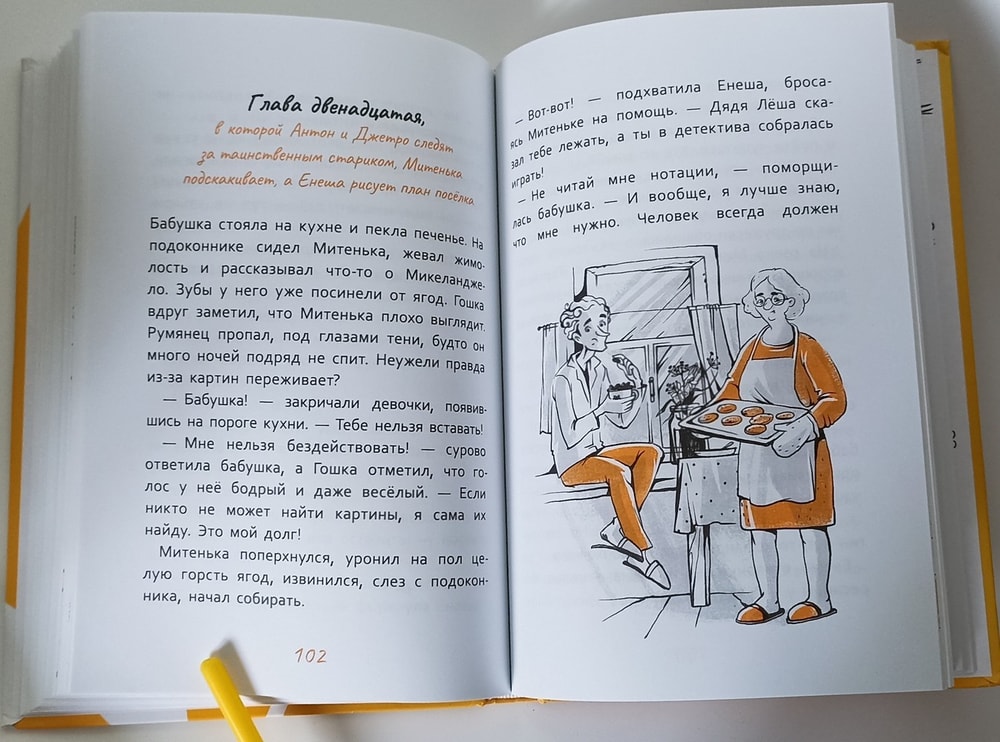 Глава двенадцатая,
в которой Антон и Джетро следят
за таинственным стариком, Митенька
подскакивает, а Енеша рисует план посёлка
Бабушка стояла на кухне и пекла печенье. На
подоконнике сидел Митенька, жевал жимо-
лость и рассказывал что-то о Микеландже-
ло. Зубы у него уже посинели от ягод. Гошка
вдруг заметил, что Митенька плохо выглядит.
Румянец пропал, под глазами тени, будто он
много ночей подряд не спит. Неужели правда
из-за картин переживает?
— Бабушка! — закричали девочки, появив-
шись на пороге кухни. — Тебе нельзя вставать!
— Мне нельзя бездействовать! — сурово
ответила бабушка, а Гошка отметил, что го-
лос у неё бодрый и даже весёлый. — Если
никто не может найти картины, я сама их
найду. Это мой долг!
Митенька поперхнулся, уронил на пол це-
лую горсть ягод, извинился, слез с подокон-
ника, начал собирать.
102
— Вот-вот! — подхватила Енеша, броса-
ясь Митеньке на помощь. — Дядя Лёша ска-
зал тебе лежать, а ты в детектива собралась
играть!
— Не читай мне нотации, — поморщи-
лась бабушка. — И вообще, я лучше знаю,
что мне нужно. Человек всегда должен